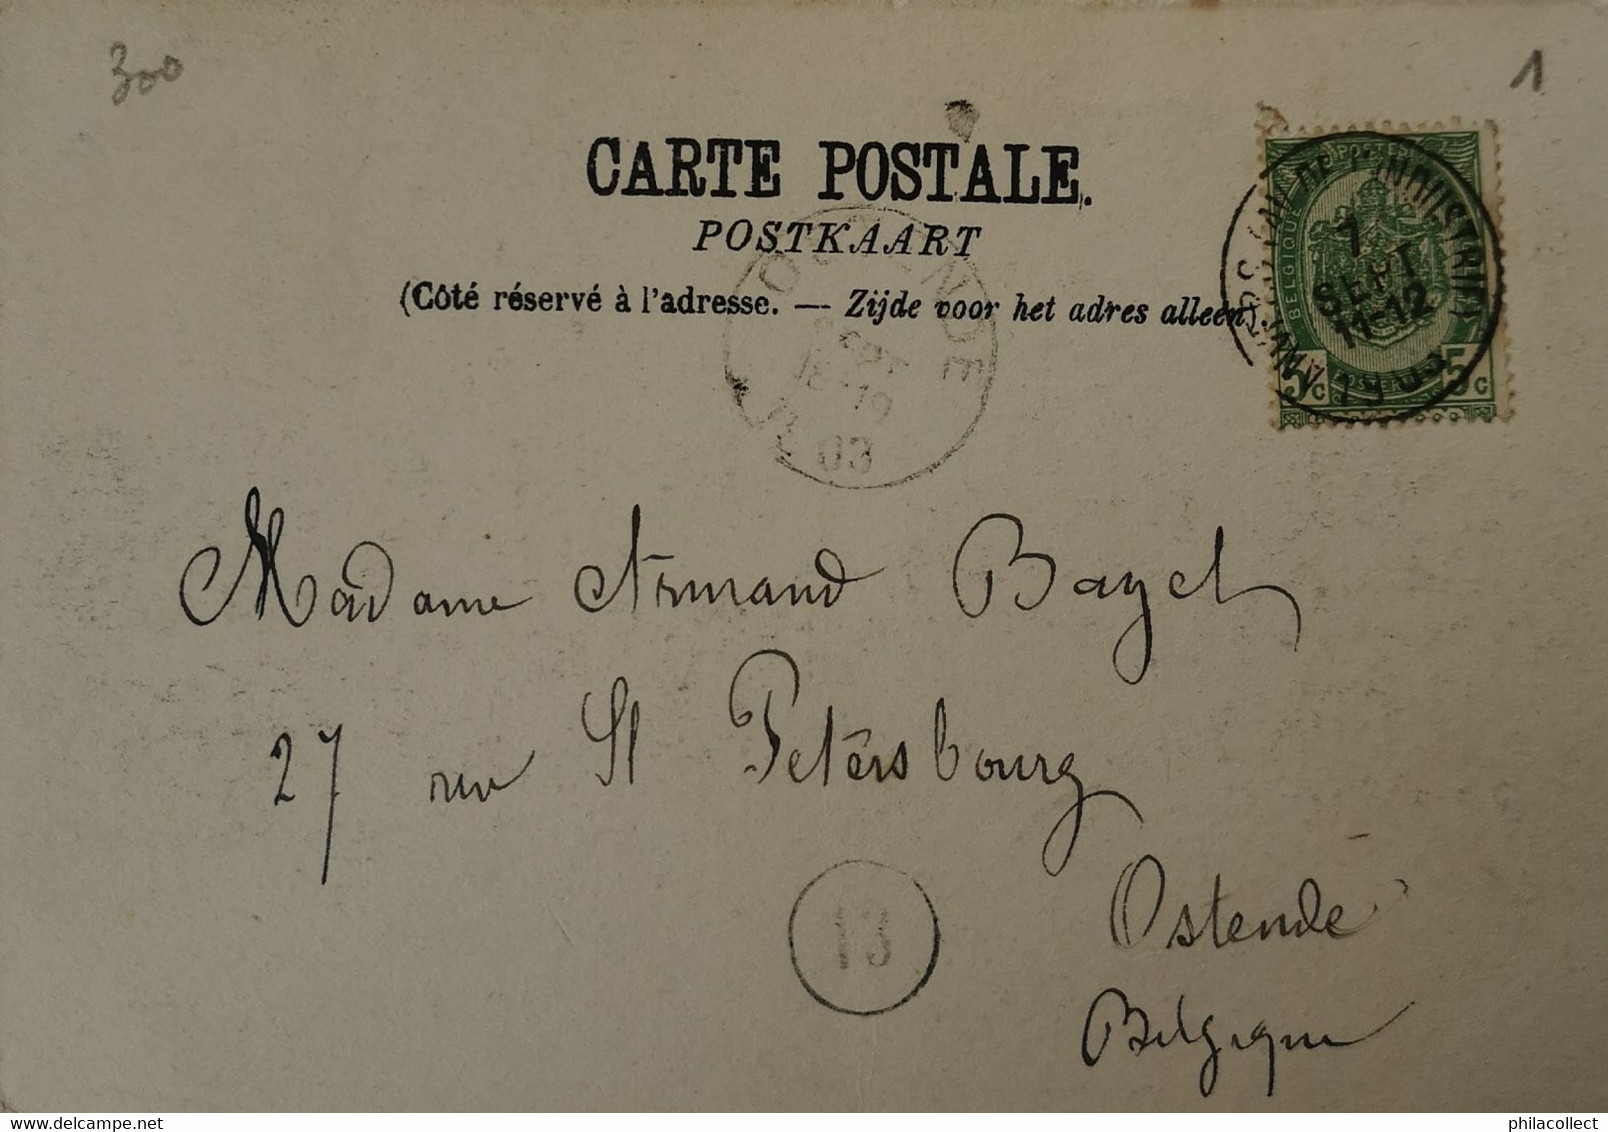 300
1
CARTE POSTALE.
POSTKAART
(Côté réservé à l'adresse. — Zijde voor het adres alleen).
POSTERIJEN
BELGIQUE
5 C 5 C
7
SEPT
11-12
1903
OSTENDE
SEPT
18-19
03
Madame Armand Bayet
27 rue St Petersbourg
13
Ostende
Belgique
delcampe.net
philacollect